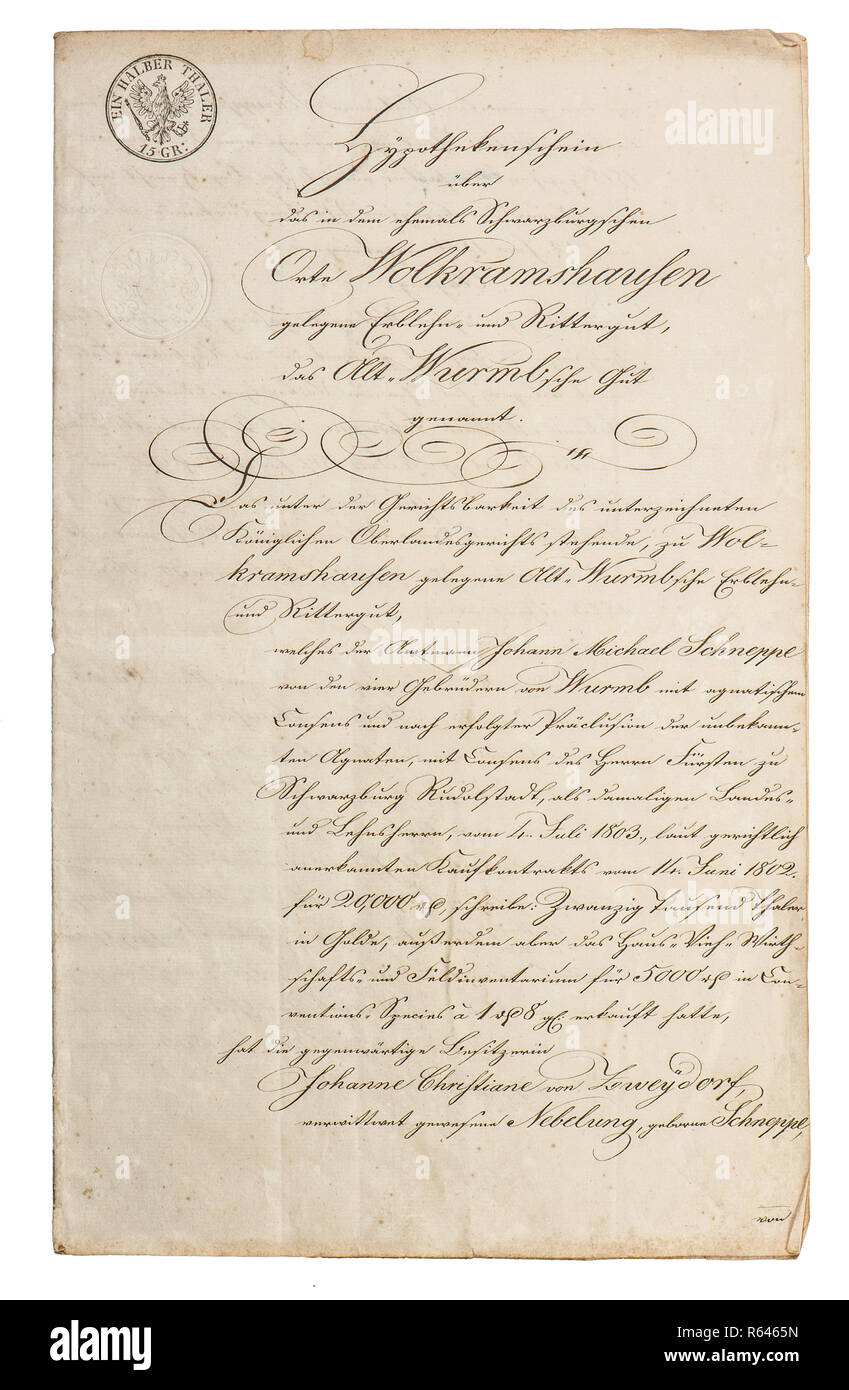 EIN HALBER THALER
15 GR:
Hypothekenschein
über
das in dem ehemals Schwarzburgschen
Orte Wolkramshausen
gelegene Erblehn- und Rittergut,
das Alt-Wurmbsche Gut
genannt.
Das unter der Gerichtsbarkeit des unterzeichneten
Königlichen Oberlandesgerichts stehende, zu Wol-
kramshausen gelegene Alt-Wurmbsche Erblehn-
und Rittergut,
welches der Amtmann Johann Michael Schneppe
von den vier Gebrüdern von Wurmb mit agnatischem
Consens und nach erfolgter Präclusion der unbekann-
ten Agnaten, mit Consens des Herrn Fürsten zu
Schwarzburg Rudolstadt, als damaligen Landes-
und Lehnsherrn, vom 4. Juli 1803., laut gerichtlich
anerkannten Kaufkontrakts vom 14. Juni 1802.
für 20,000 rℓ, schreibe: Zwanzig Tausend Thaler,
in Golde, außerdem aber das Haus- Vieh- Wirth-
schafts- und Feldinventarium für 5000 rℓ in Con-
ventions-Species à 1 rℓ 8 gl: erkauft hatte,
hat die gegenwärtige Besitzerin
Johanne Christiane von Zweydorf,
verwittwet gewesene Nebelung, geborne Schneppe,
von
alamy
alamy
Image ID: R6465N
www.alamy.com